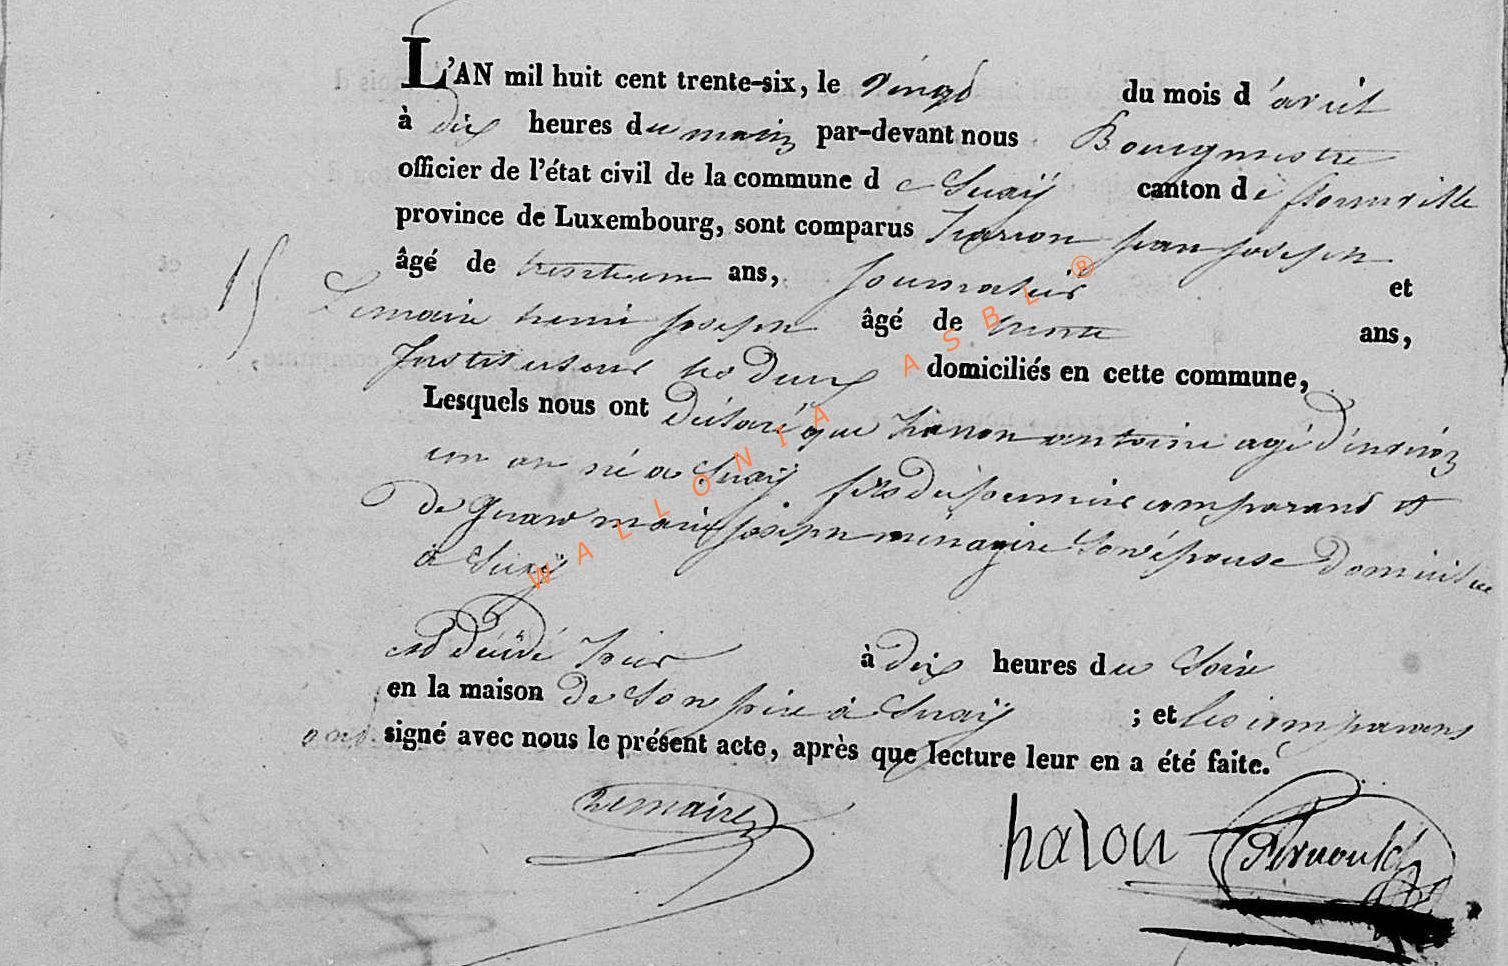 L'AN mil huit cent trente-six, le vingt du mois d'avril
à dix heures du matin par-devant nous Bourgmestre
officier de l'état civil de la commune de Suxÿ canton de florenville
province de Luxembourg, sont comparus jean joseph
âgé de ans, journalier et
15 Lemaire henri joseph âgé de trente ans,
Instituteur tos deux domiciliés en cette commune,
Lesquels nous ont déclaré que antoine agé d'environ
un an né a Suxÿ fils du premier comparant et
de marie joseph ménagère son épouse domicilié
à Suxÿ
est décidé hier à dix heures du soir
en la maison de son père à Suxÿ ; et les comparans
ont signé avec nous le présent acte, après que lecture leur en a été faite.
Lemaire
haron Arnould
WALLONIA ASBL ®